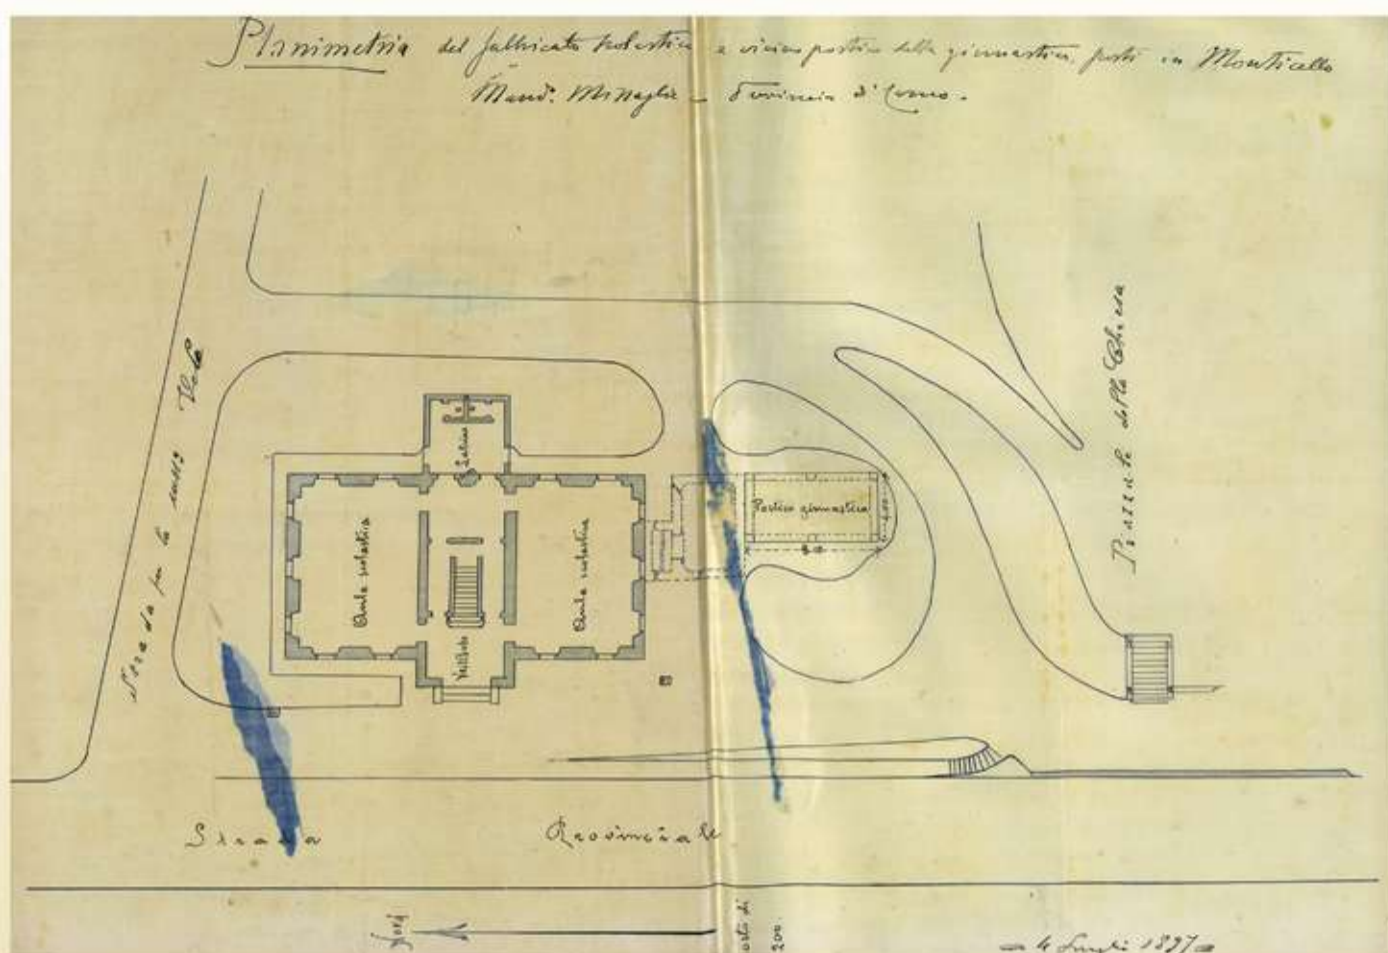 Planimetria del fabbricato scolastico e vicino portico della ginnastica, posti in Monticello
Mand. Missaglia - Provincia di Como.
Strada per la
Piazzale della Chiesa
Latrine
Portico ginnastica
4.00
Aula scolastica
Aula scolastica
Vestibolo
Strada Provinciale
Nord
200.
4 Luglio 1897